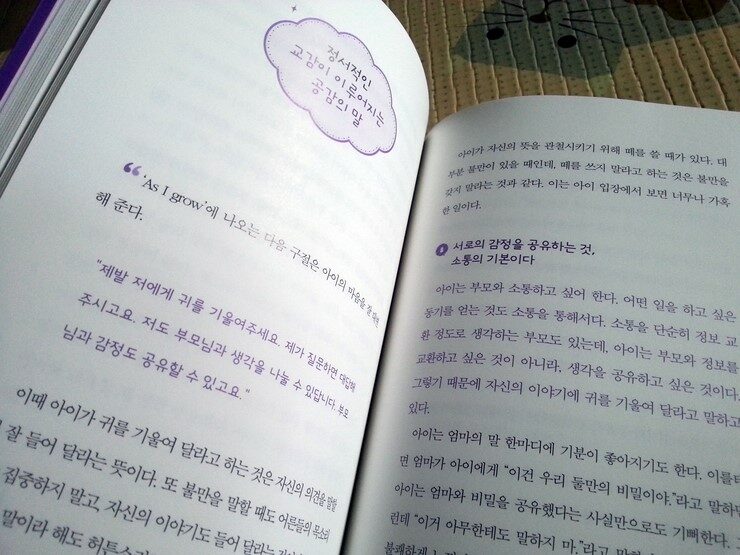 정서적인
교감이 이루어지는
공감의 말
“ 'As I grow'에 나오는 다음 구절은 아이의 마음을 잘
해 준다.
"제발 저에게 귀를 기울여주세요. 제가 질문하면 대답해
주시고요. 저도 부모님과 생각을 나눌 수 있답니다. 부모
님과 감정도 공유할 수 있고요."
이때 아이가 귀를 기울여 달라고 하는 것은 자신의 의견을
잘 들어 달라는 뜻이다. 또 불만을 말할 때도 어른들의 목소리
집중하지 말고, 자신의 이야기도 들어 달라는
말이라 해도
아이가 자신의 뜻을 관철시키기 위해 떼를 쓸 때가 있다. 대
부분 불만이 있을 때인데, 떼를 쓰지 말라고 하는 것은 불만을
갖지 말라는 것과 같다. 이는 아이 입장에서 보면 너무나 가혹
한 일이다.
서로의 감정을 공유하는 것,
소통의 기본이다
아이는 부모와 소통하고 싶어 한다. 어떤 일을 하고 싶은
동기를 얻는 것도 소통을 통해서다. 소통을 단순히 정보 교
환 정도로 생각하는 부모도 있는데, 아이는 부모와 정보를
교환하고 싶은 것이 아니라, 생각을 공유하고 싶은 것이다.
그렇기 때문에 자신의 이야기에 귀를 기울여 달라고 말하고
있다.
아이는 엄마의 말 한마디에 기분이 좋아지기도 한다. 이를테
면 엄마가 아이에게 “이건 우리 둘만의 비밀이야.”라고 말하면
아이는 엄마와 비밀을 공유했다는 사실만으로도 기뻐한다. 그
런데 “이거 아무한테도 말하지 마.”라고 말하면
불쾌하게